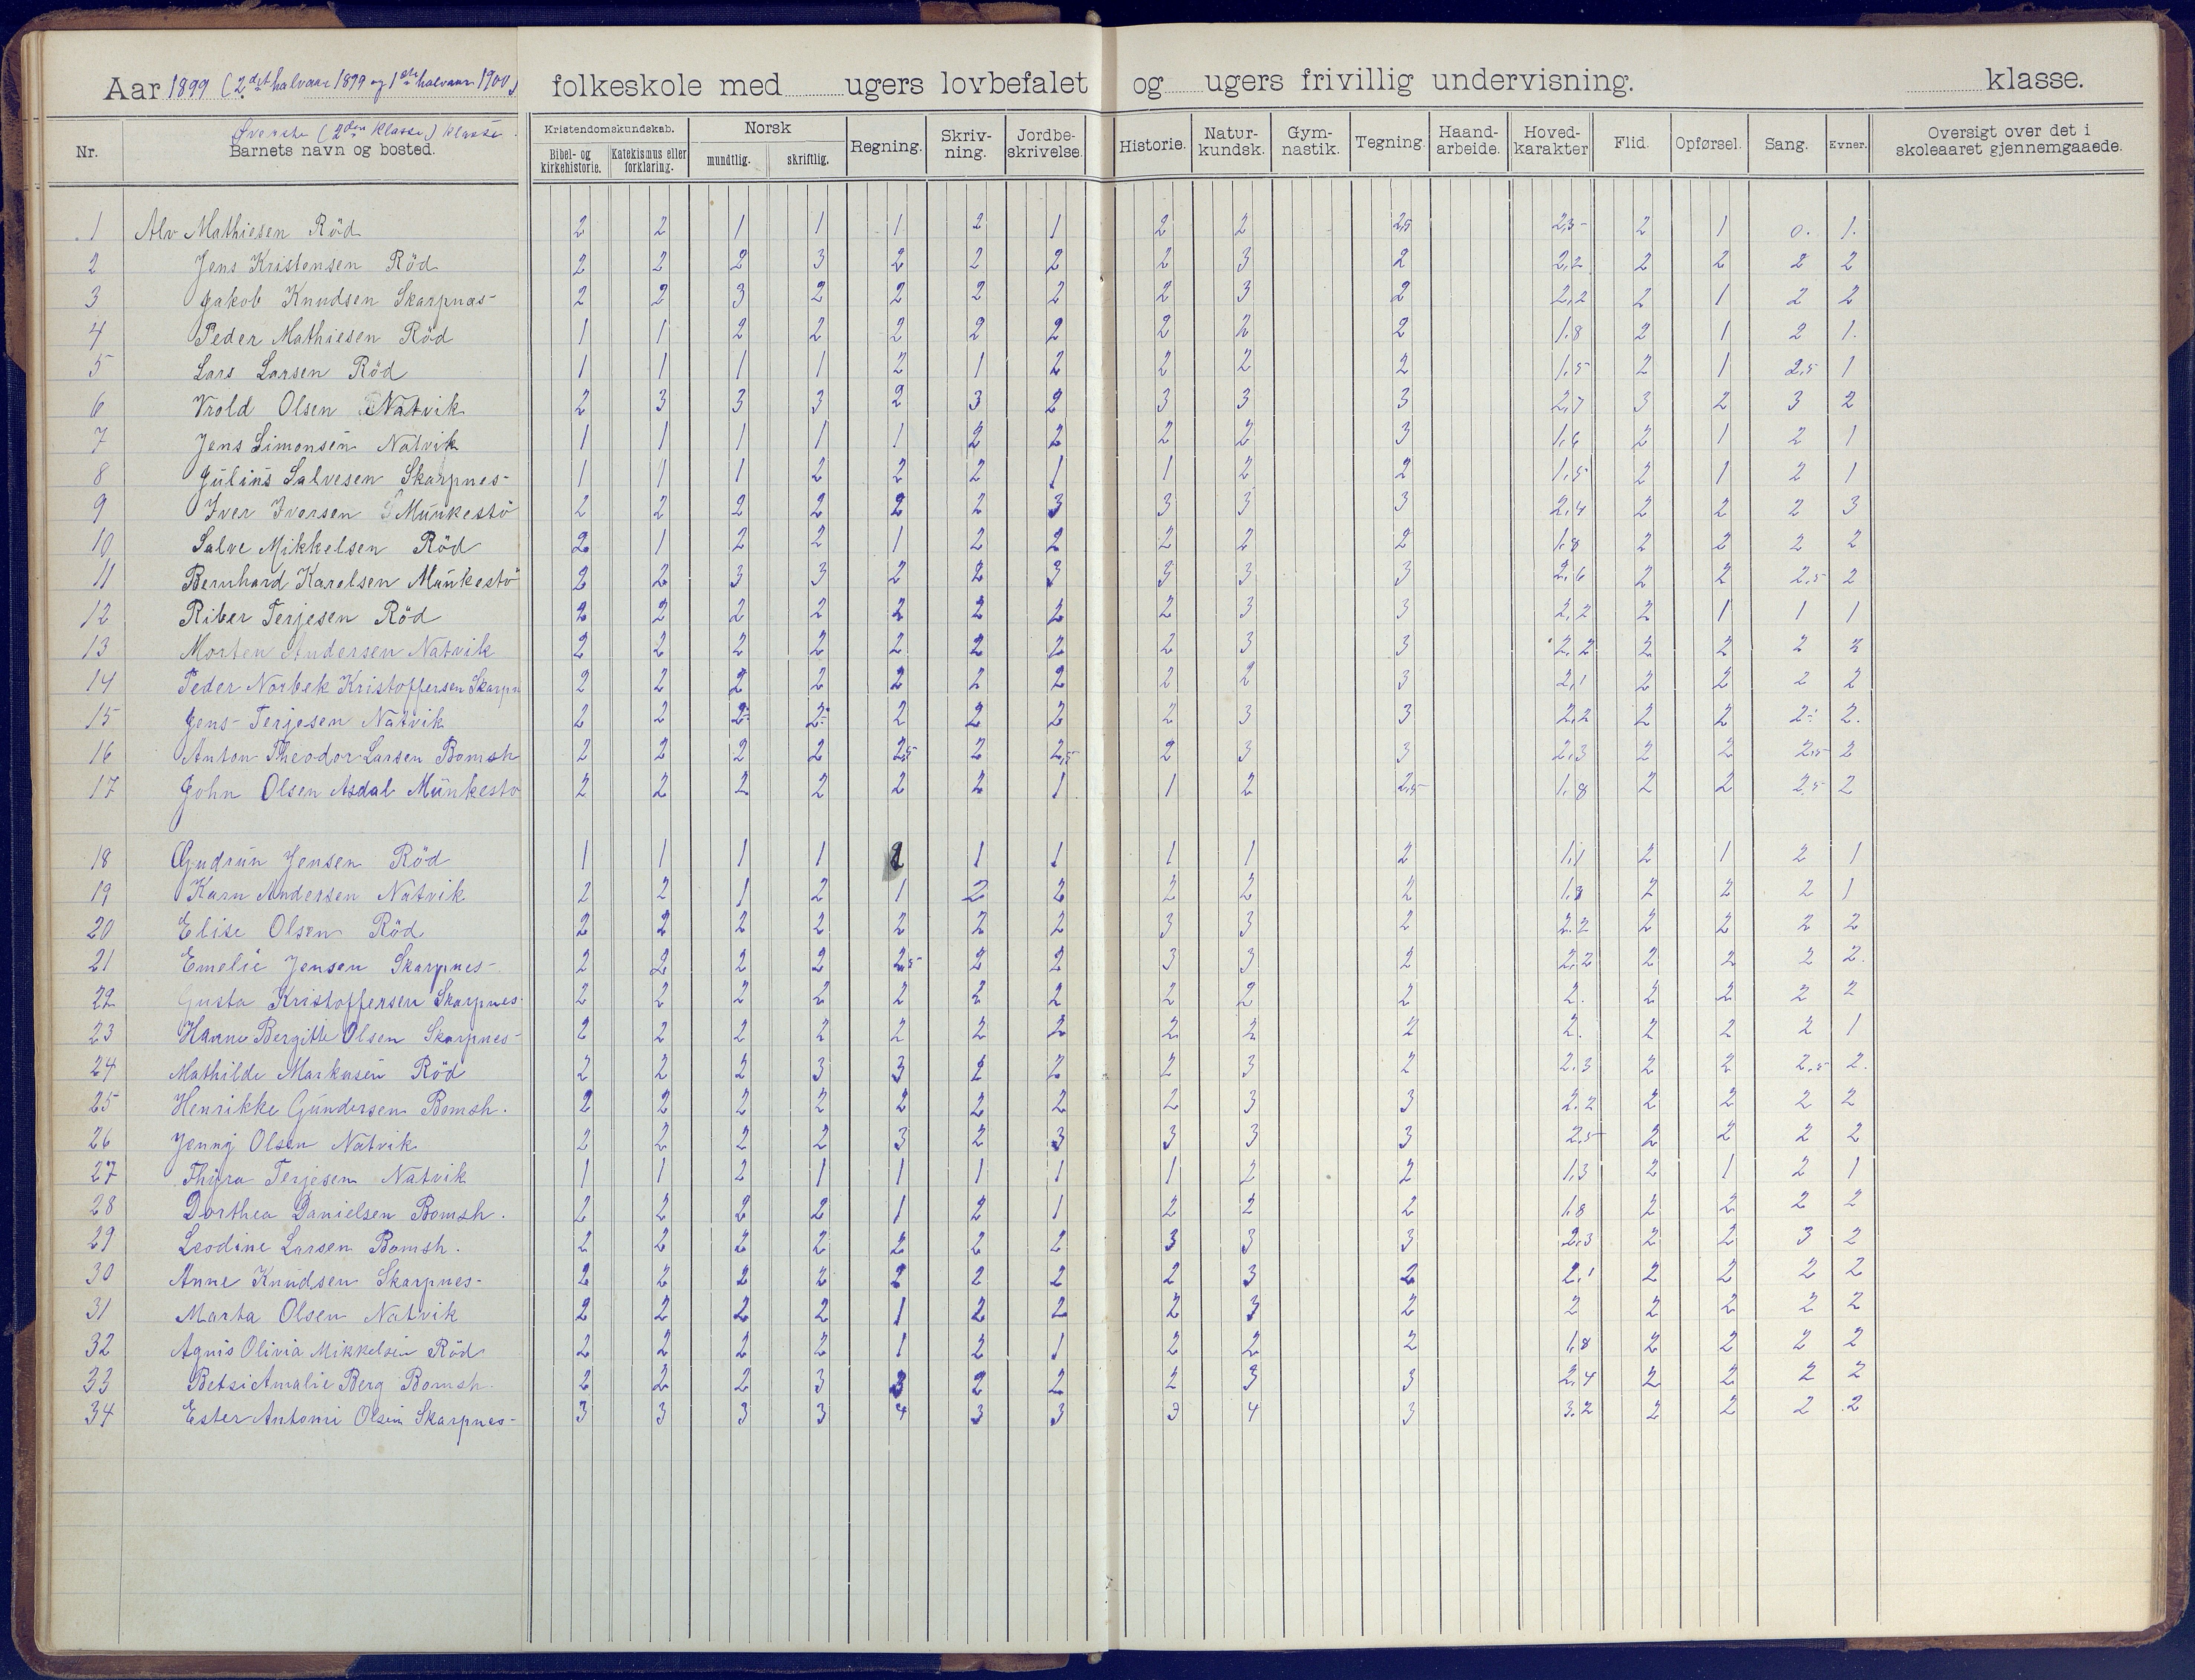 Aar 1899 (2det halvaar 1899 og 1ste halvaar 1900) folkeskole med ugers lovbefalet og ugers frivillig undervisning. klasse.
Øverste (2den klasse) klasse.
Nr. Barnets navn og bosted. Kristendomskundskab. Bibel- og kirkehistorie. Katekismus eller forklaring. Norsk mundtlig. skriftlig. Regning. Skriv-ning. Jordbe-skrivelse. Historie. Natur-kundsk. Gym-nastik. Tegning. Haand-arbeide. Hoved-karakter Flid. Opførsel. Sang. Evner. Oversigt over det i skoleaaret gjennemgaaede.
1 Alv Mathiesen Röd 2 2 1 1 1 2 1 2 2 2,5 2,3- 2 1 0. 1.
2 Jens Kristensen Röd 2 2 2 3 2 2 2 2 3 2 2,2 2 2 2 2
3 Jakob Knudsen Skarpnas- 2 2 3 2 2 2 2 2 3 2 2,2 2 1 2 2
4 Peder Mathiesen Röd 1 1 2 2 2 2 2 2 2 2 1.8 2 1 2 1.
5 Lars Larsen Röd 1 1 1 1 2 1 2 2 2 2 1,5 2 1 2,5 1
6 Vrold Olsen Natvik 2 3 3 3 2 3 2 3 3 3 2,7 3 2 3 2
7 Jens Simonsen Natvik 1 1 1 1 1 2 2 2 2 3 1,6 2 1 2 1
8 Julius Salvesen Skarpnes- 1 1 1 2 2 2 1 1 2 2 1,5 2 1 2 1
9 Iver Iversen Munkestö 2 2 2 2 2 2 3 3 3 3 2,4 2 2 2 3
10 Salve Mikkelsen Röd 2 1 2 2 1 2 2 2 2 2 1,8 2 2 2 2
11 Bernhard Karelsen Munkestö 2 2 3 3 2 2 3 3 3 3 2,6 2 2 2,5 2
12 Riber Terjesen Röd 2 2 2 2 2 2 2 2 3 3 2,2 2 1 1 1
13 Morten Andersen Natvik 2 2 2 2 2 2 2 2 3 3 2,2 2 2 2 2
14 Peder Norbek Kristoffersen Skarpn 2 2 2 2 2 2 2 2 2 3 2,1 2 2 2 2
15 Jens Terjesen Natvik 2 2 2- 2- 2 2 2 2 3 3 2,2 2 2 2- 2.
16 Anton Theodor Larsen Bomsh 2 2 2 2 2,5 2 2,5 2 3 3 2,3 2 2 2,5 2
17 John Olsen Asdal Munkestö 2 2 2 2 2 2 1 1 2 2,5 1,8 2 2 2,5 2
18 Gudrun Jensen Röd 1 1 1 1 1 1 1 1 2 1,1 2 1 2 1
19 Karn Andersen Natvik 2 2 1 2 1 2 2 2 2 2 1,8 2 2 2 1
20 Elise Olsen Röd 2 2 2 2 2 2 2 3 3 2 2.2 2 2 2 2
21 Emelie Jensen Skarpnes- 2 2 2 2 2,5 2 2 3 3 2 2,2 2 2 2 2.
22 Gusta Kristoffersen Skarpnes- 2 2 2 2 2 2 2 2 2 2 2. 2 2 2 2
23 Hanne Bergitte Olsen Skarpnes- 2 2 2 2 2 2 2 2 2 2 2. 2 2 2 1
24 Mathilde Markusen Röd 2 2 2 3 3 2 2 2 3 2 2.3 2 2 2,5 2.
25 Henrikke Gundersen Bomsh. 2 2 2 2 2 2 2 2 3 3 2.2 2 2 2 2
26 Jenny Olsen Natvik 2 2 2 2 3 2 3 3 3 3 2,5 2 2 2 2
27 Thyra Terjesen Natvik 1 1 2 1 1 1 1 1 2 2 1,3 2 1 2 1
28 Dorthea Danielsen Bomsh. 2 2 2 2 1 2 1 2 2 2 1,8 2 2 2 2
29 Leodine Larsen Bomsh. 2 2 2 2 2 2 2 3 3 3 2,3 2 2 3 2
30 Anne Knudsen Skarpnes- 2 2 2 2 2 2 2 2 3 2 2,1 2 2 2 2
31 Marta Olsen Natvik 2 2 2 2 1 2 2 2 3 2 2 2 2 2 2
32 Agnis Olivia Mikkelsen Röd 2 2 2 2 1 2 1 2 2 2 1,8 2 2 2 2
33 Betsi Amalie Berg Bomsh. 2 2 2 3 3 2 2 2 3 3 2,4 2 2 2 2
34 Ester Antomi Olsen Skarpnes- 3 3 3 3 4 3 3 3 4 3 3.2 2 2 2 2